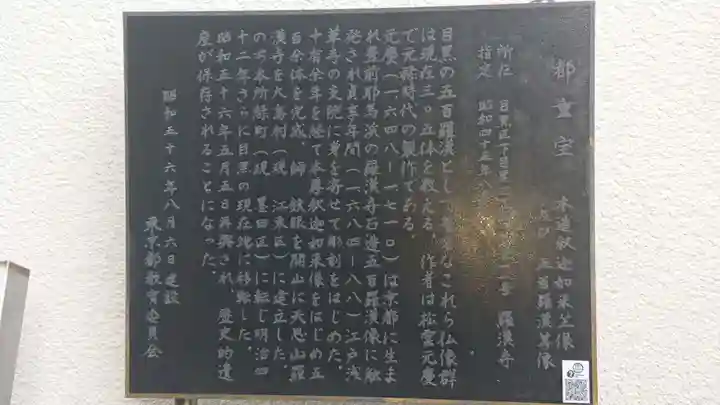 都重宝
木造釈迦如来坐像
及び 五百羅漢等像
所在 目黒区下目黒 号 羅漢寺
指定 昭和四十五年八
目黒の五百羅漢として著名なこれら仏像群
は現在三〇五体を数える。作者は松雲元慶
で元禄時代の製作である。
元慶(一六四八ー一七一〇)は京都に生ま
れ豊前耶馬渓の羅漢寺石造五百羅漢像に触
発され貞享年間(一六八四ー八八)江戸浅
草寺の支院に身を寄せて彫刻をはじめた。
十有余年を経て本尊釈迦如来像をはじめ五
百余体を完成、師 鉄眼を開山に天恩山羅
漢寺を大島村(現 江東区)に建立した。
のち本所緑町(現 墨田区)に転じ明治四
十二年さらに目黒の現在地に移転した。
昭和五十六年五月五日再興され、歴史的遺
産が保存されることになった。
昭和五十六年八月六日建設
東京都教育委員会